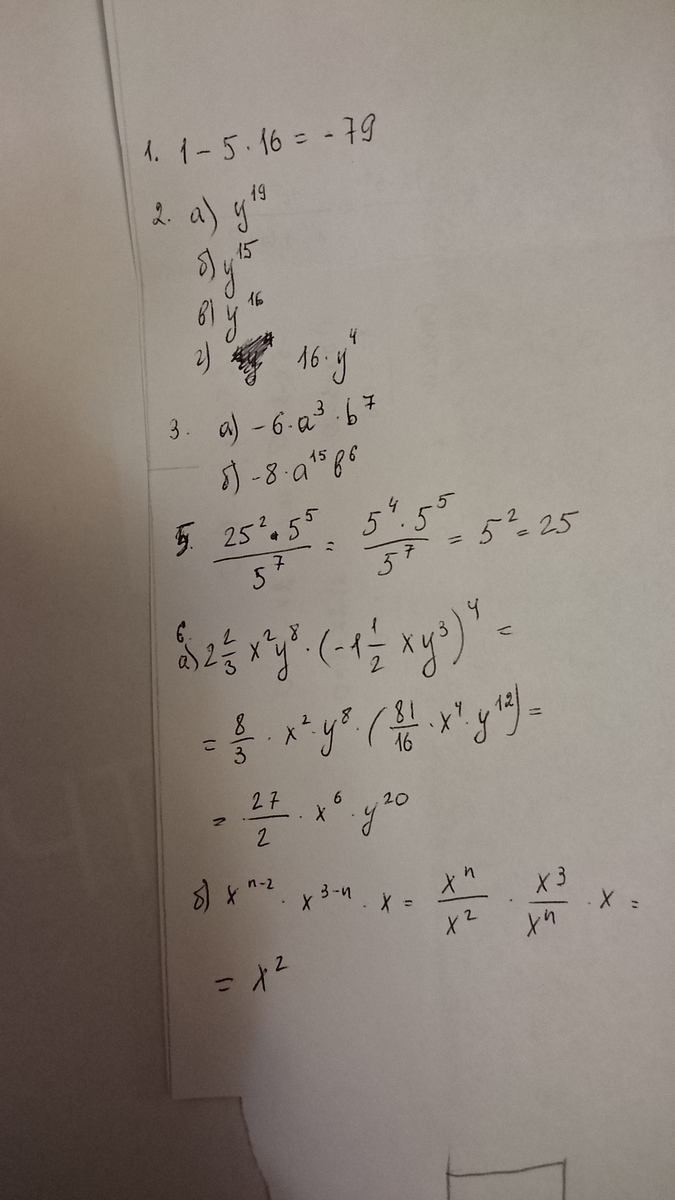 1. 1 - 5 · 16 = -79
2. а) y¹⁹
б) y¹⁵
в) y¹⁶
г) 16 · y⁴
3. а) -6 · a³ · b⁷
б) -8 · a¹⁵ b⁶
5. \frac{25² · 5⁵}{5⁷} = \frac{5⁴ · 5⁵}{5⁷} = 5² = 25
6.
а) 2\frac{2}{3} x²y⁸ · (-1\frac{1}{2} xy³)⁴ =
= \frac{8}{3} · x² · y⁸ · (\frac{81}{16} · x⁴ · y¹²) =
= \frac{27}{2} · x⁶ · y²⁰
б) xⁿ⁻² · x³⁻ⁿ · x = \frac{xⁿ}{x²} · \frac{x³}{xⁿ} · x =
= x²